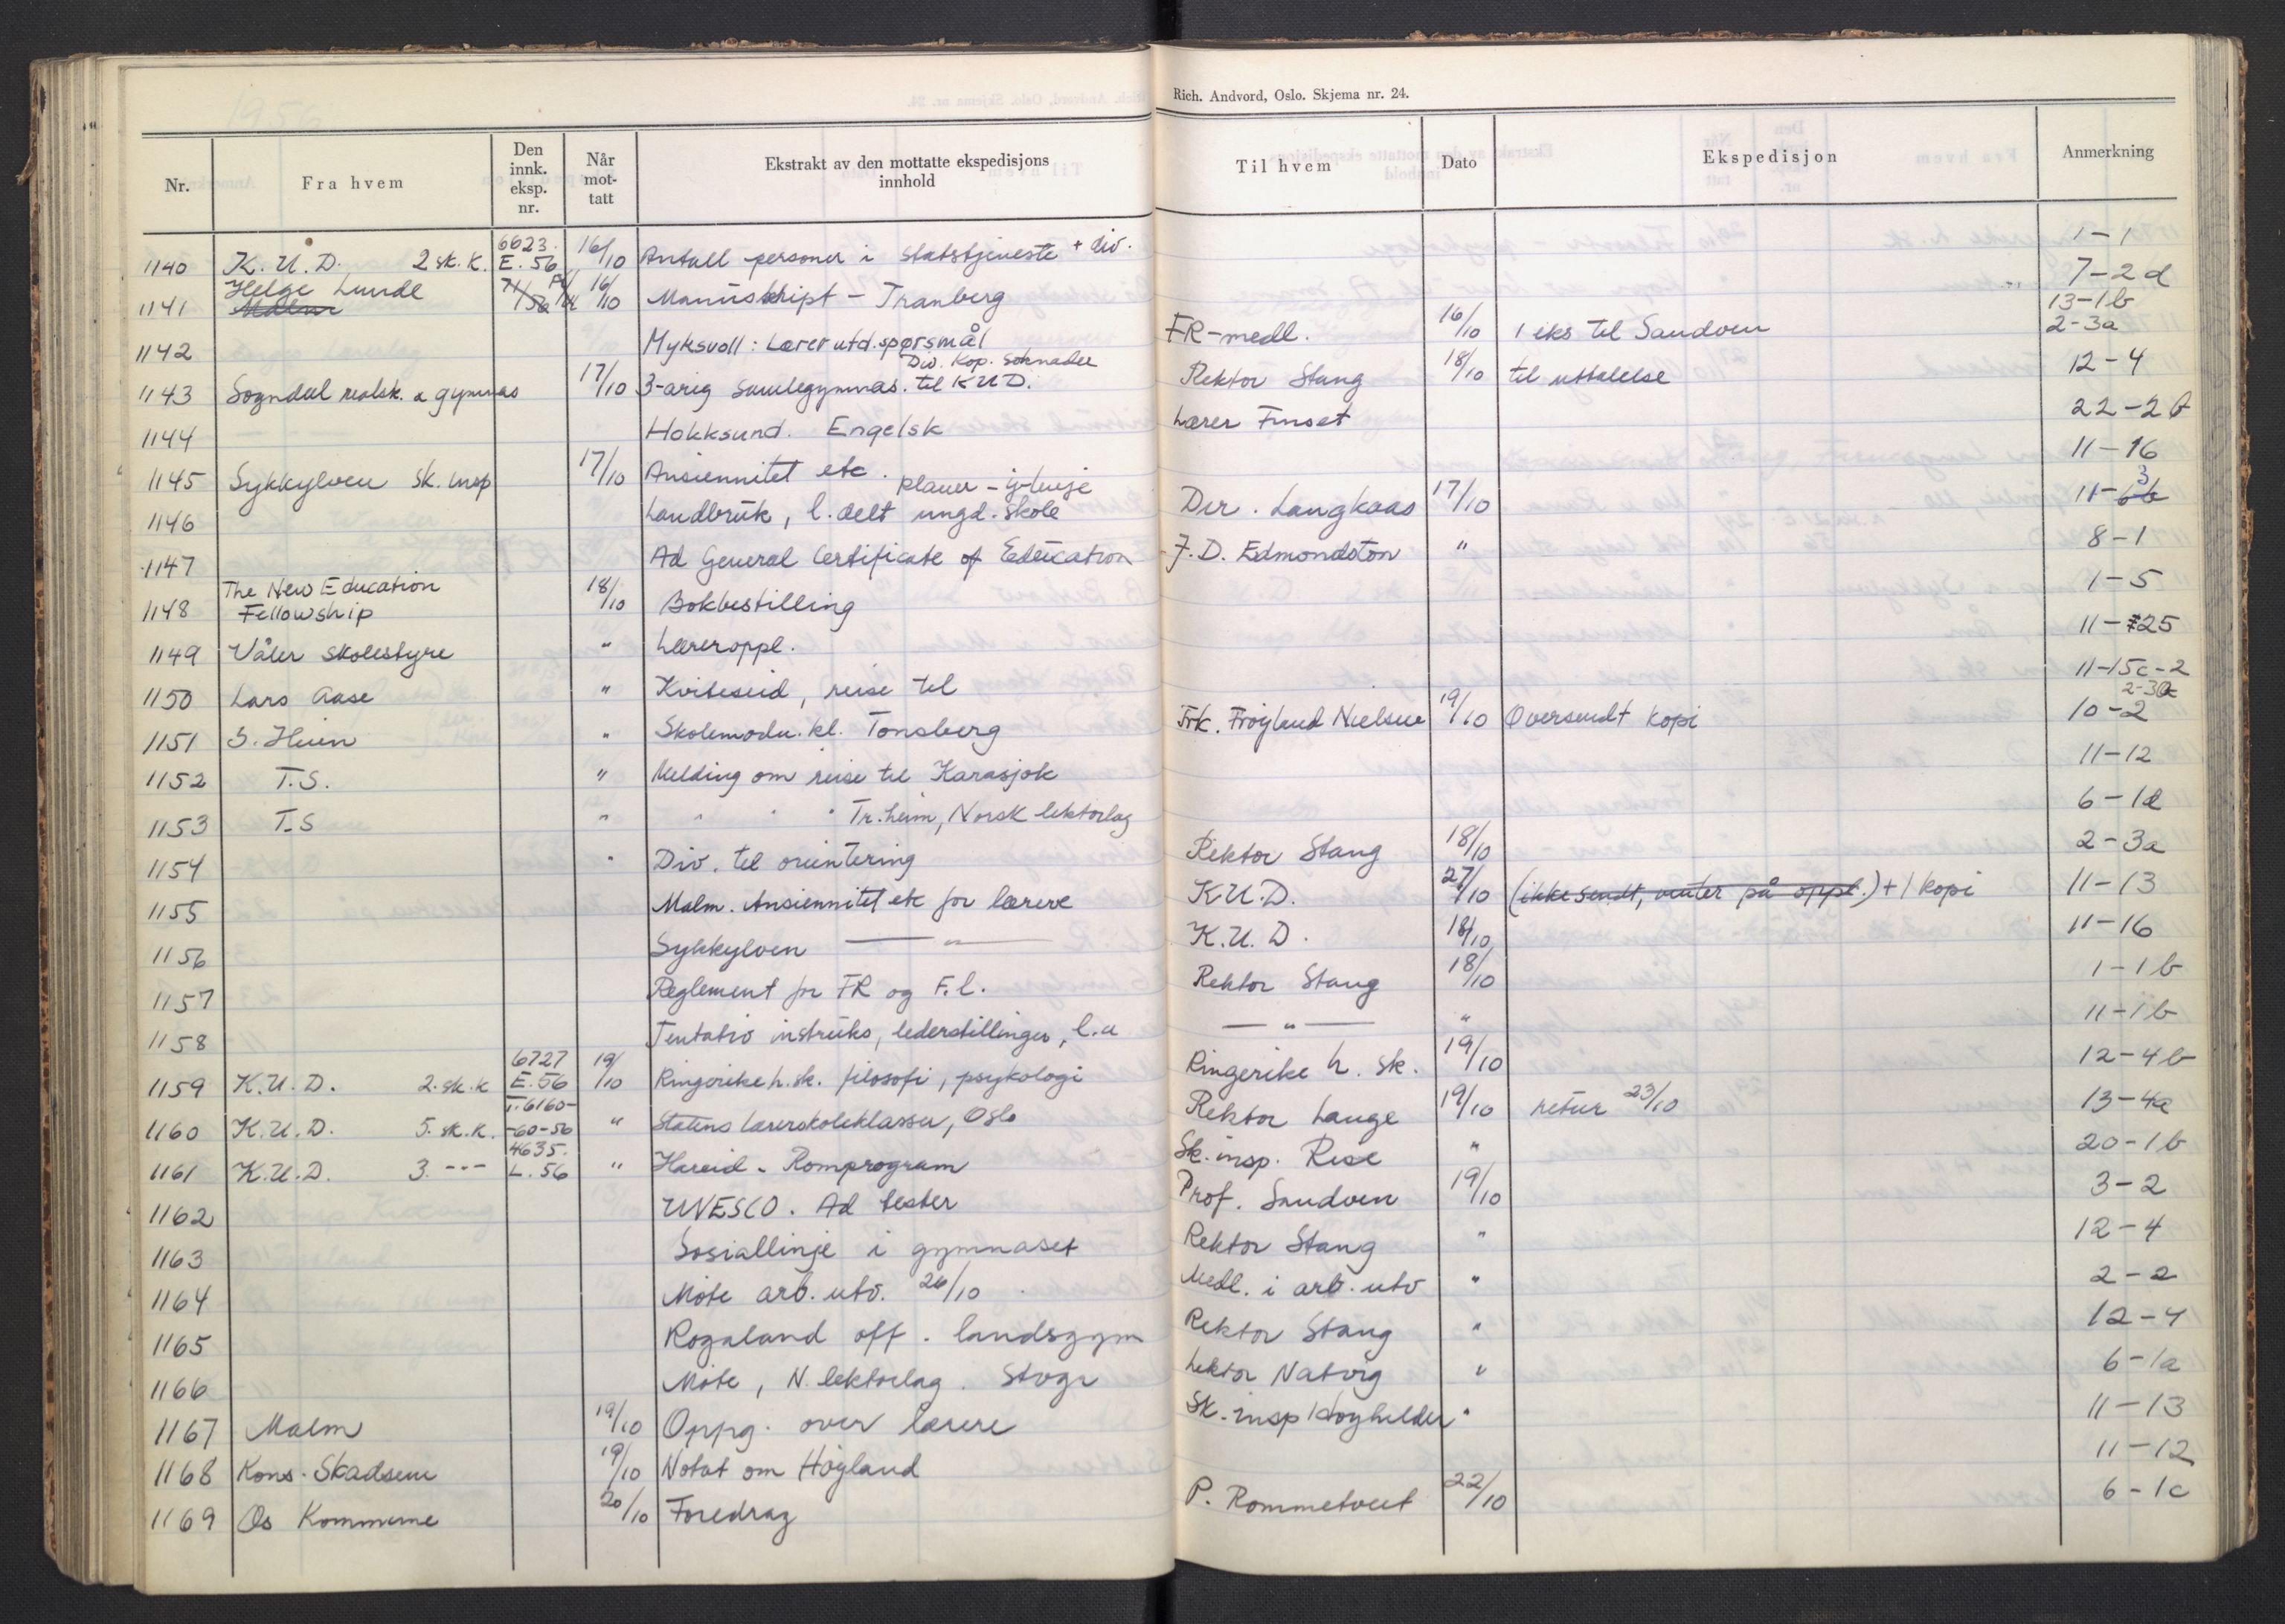 1956
Rich. Andvord, Oslo. Skjema nr. 24.
Nr. Fra hvem Den innk. eksp. nr. Når mot- tatt Ekstrakt av den mottatte ekspedisjons innhold Til hvem Dato Ekspedisjon Anmerkning
1140 K. U. D. 2 sk. K. 6623. E. 56 16/10 Antall personer i statstjeneste + div. 1-1
1141 Helge Lunde 16/10 Manuskript - Tranberg 7-2d
1142 Myksvoll: Lærerutd.spørsmål FR-medl. 16/10 1 eks til Sandven 13-1b 2-3a
1143 Sogndal realsk. a gymnas 17/10 3-årig samlegymnas. Div. Kop. søknader til KUD. Rektor Stang 18/10 til uttalelse 12-4
1144 Hokksund. Engelsk Lærer Finset 22-2b
1145 Sykkylven sk. insp 17/10 Ansiennitet etc. 11-16
1146 Landbruk, l. delt ungd. skole planer - g-linje Dir. Langkaas 17/10 11-3
1147 Ad General Certificate of Education J. D. Edmondston " 8-1
1148 The New Education Fellowship 18/10 Bokbestilling 1-5
1149 Våler skolestyre " Læreroppl. 11-25
1150 Lars Aase " Kviteseid, reise til 11-15c-2
1151 S. Huen " Skolemodn. kl. Tønsberg Frk. Frøyland Nielsen 19/10 Oversendt kopi 2-3a 10-2
1152 T.S. " Melding om reise til Karasjok 11-12
1153 T.S " " " " Tr.heim, Norsk lektorlag 6-1a
1154 " Div. til orientering Rektor Stang 18/10 2-3a
1155 Malm. Ansiennitet etc for lærere K.U.D. 27/10 (ikke sendt, venter på oppl.) + 1 kopi 11-13
1156 Sykkylven — " — K. U. D. 18/10 11-16
1157 Reglement for FR og F.l. Rektor Stang 18/10 1-1b
1158 Tentativ instruks, lederstillinger, l.a — " — " 11-1b
1159 K.U.D. 2. sk. k 6727 E. 56 19/10 Ringerike h. sk. filosofi, psykologi Ringerike h. sk. 19/10 12-4b
1160 K.U.D. 5. sk. k. T. 6160- -60-56 " Statens lærerskoleklasser, Oslo Rektor Lange 19/10 retur 23/10 13-4a
1161 K.U.D. 3. --- 4635. L. 56 " Hareid - Romprogram Sk. insp. Rise " 20-1b
1162 UNESCO. Ad tester Prof. Sandven 19/10 3-2
1163 Sosiallinje i gymnaset Rektor Stang " 12-4
1164 Møte arb. utv. 26/10 Medl. i arb. utv " 2-2
1165 Rogaland off. landsgym Rektor Stang " 12-4
1166 Møte, N. lektorlag. Stogr Lektor Natvig " 6-1a
1167 Malm 19/10 Oppg. over lærere Sk. insp Høyhilder " 11-13
1168 Kons. Skadsem 19/10 Notat om Høyland 11-12
1169 Os Kommune 20/10 Foredrag P. Rommetveit 22/10 6-1c